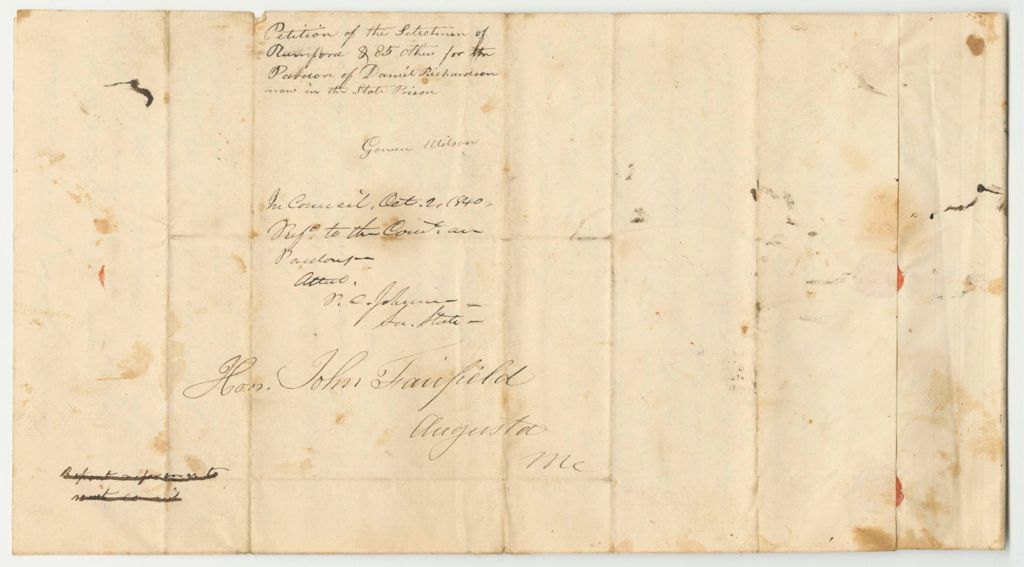 Petition of the Selectmen of
Rumford & 85 others for the
Pardon of Daniel Richardson
now in the State Prison
Gowen Wilson
In Council, Oct. 2, 1840,
Refd. to the Comte. on
Pardons
Attest.
P. C. Johnson
Sec. State
Hon. John Fairfield
Augusta
Me
Report
next